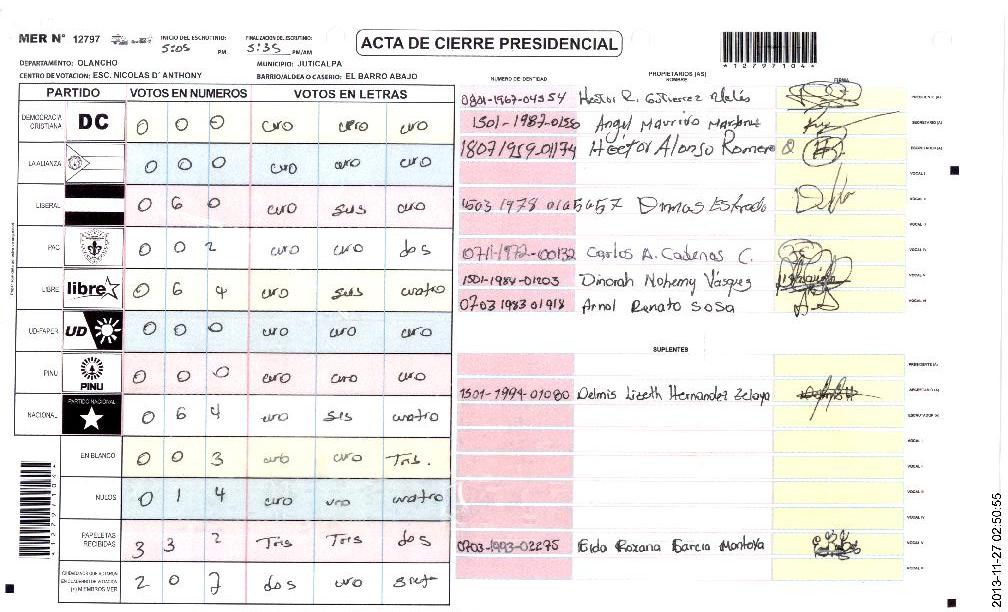 MER N° 12797
INICIO DEL ESCRUTINIO: 5:05 PM.
FINALIZACION DEL ESCRUTINIO: 5:35 PM/AM
ACTA DE CIERRE PRESIDENCIAL
*12797104*
DEPARTAMENTO: OLANCHO
MUNICIPIO: JUTICALPA
CENTRO DE VOTACION: ESC. NICOLAS D´ ANTHONY
BARRIO/ALDEA O CASERIO: EL BARRO ABAJO
PARTIDO VOTOS EN NUMEROS VOTOS EN LETRAS
DEMOCRACIA CRISTIANA DC 0 0 0 cero cero cero
LA ALIANZA 0 0 0 cero cero cero
LIBERAL 0 6 0 cero seis cero
PAC 0 0 2 cero cero dos
LIBRE libre 0 6 4 cero seis cuatro
UD-FAPER UD 0 0 0 cero cero cero
PINU PINU 0 0 0 cero cero cero
NACIONAL PARTIDO NACIONAL 0 6 4 cero seis cuatro
EN BLANCO 0 0 3 cero cero Tres.
NULOS 0 1 4 cero uno cuatro
PAPELETAS RECIBIDAS 3 3 2 Tres Tres dos
CIUDADANOS QUE VOTARON EN CUADERNO DE VOTACION (+) MIEMBROS MER 2 0 7 dos
NUMERO DE IDENTIDAD PROPIETARIOS (AS) NOMBRE FIRMA
Hector R. Gutierrez PRESIDENTE (A)
1501-1987-0150 Angel Mauricio SECRETARIO (A)
1807 1959-01174 Héctor Alonso Romero ESCRUTADOR (A)
VOCAL I
Dimas Estrada VOCAL II
VOCAL III
0711-1972-00132 Carlos A. Cadenas C. VOCAL IV
1501-1984-01203 Dinorah Nohemy Vásquez VOCAL V
0703 1983 01918 Arnol Renato Sosa VOCAL VI
SUPLENTES
PRESIDENTE (A)
1501-1994-01080 Delmis Lizeth Hernandez Zelaya SECRETARIO (A)
ESCRUTADOR (A)
VOCAL I
VOCAL II
VOCAL III
VOCAL IV
0703-1993-02275 Elda Roxana Garcia Montoya VOCAL V
VOCAL VI
*12797104*
2013-11-27 02:50:55